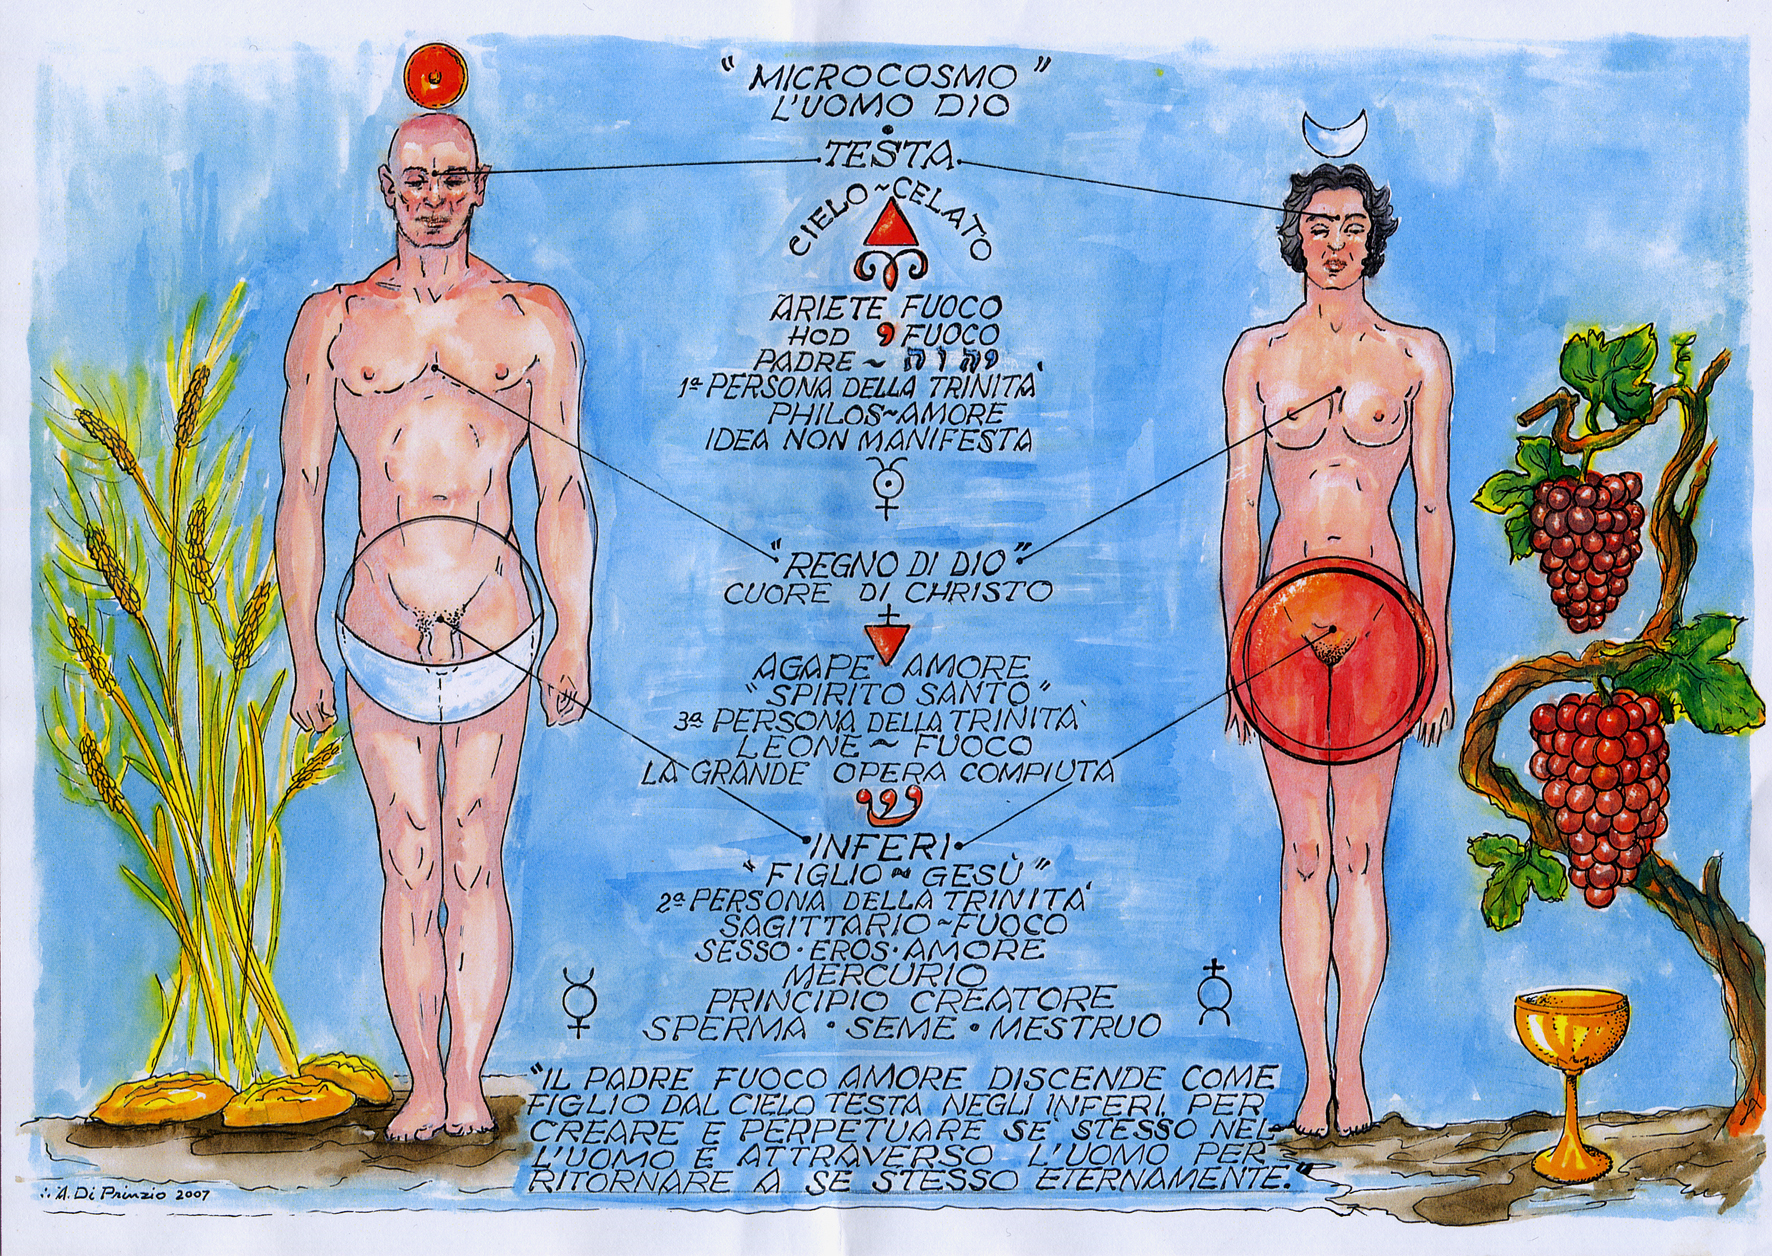 "MICROCOSMO"
L'UOMO DIO
TESTA
CIELO~CELATO
ARIETE FUOCO
HOD י FUOCO
PADRE ~ יהוה
1ª PERSONA DELLA TRINITÀ
PHILOS~AMORE
IDEA NON MANIFESTA
"REGNO DI DIO"
CUORE DI CHRISTO
AGAPE AMORE
"SPIRITO SANTO"
3ª PERSONA DELLA TRINITÀ
LEONE ~ FUOCO
LA GRANDE OPERA COMPIUTA
ש
INFERI
"FIGLIO ~ GESÙ"
2ª PERSONA DELLA TRINITÀ
SAGITTARIO~FUOCO
SESSO·EROS·AMORE
MERCURIO
PRINCIPIO CREATORE
SPERMA · SEME · MESTRUO
"IL PADRE FUOCO AMORE DISCENDE COME
FIGLIO DAL CIELO TESTA NEGLI INFERI, PER
CREARE E PERPETUARE SE STESSO NEL-
L'UOMO E ATTRAVERSO L'UOMO PER
RITORNARE A SE STESSO ETERNAMENTE."
∴ A. Di Prinzio 2007